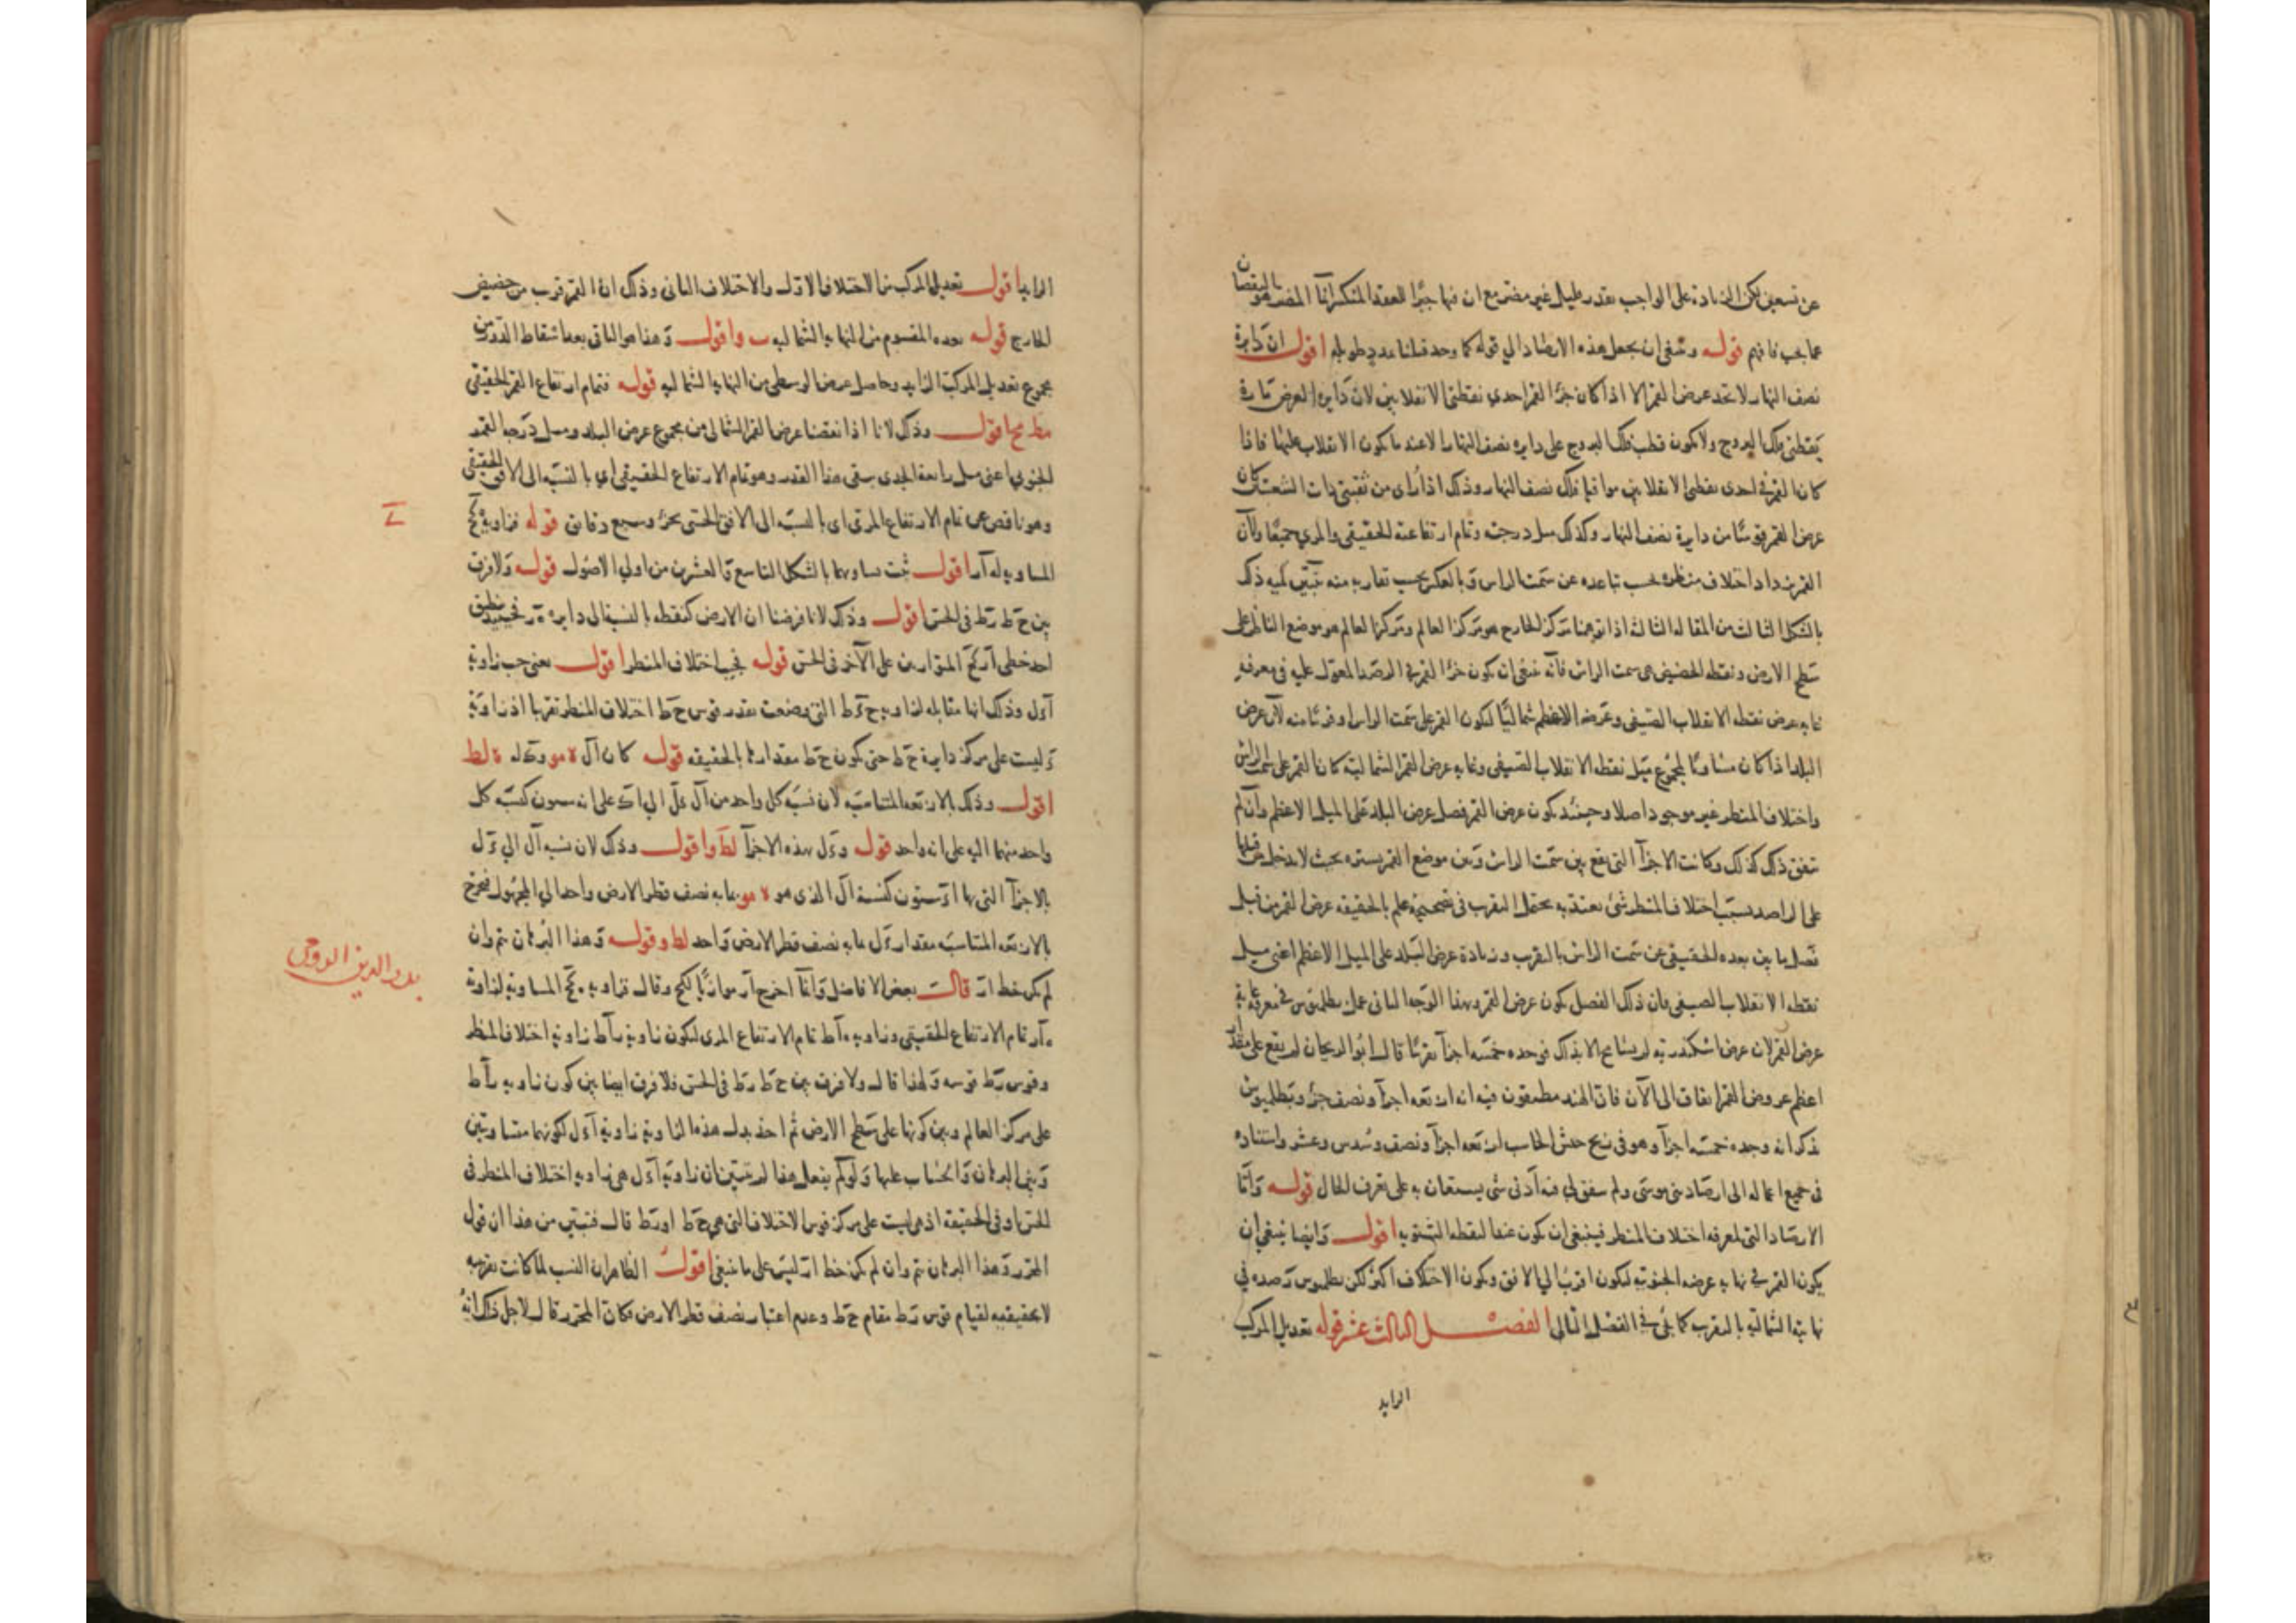 عن تسعين لكن الزيادة على الواجب بقدر قليل غير مضر مع ان فيها جبرًا للعقد المنكسر انما المضر هو النقصان
عما يجب فافهم قوله وينبغي ان يجعل هذه الارصاد الي قوله كما وجد قبلنا اقول ان دايرة
نصف النهار لا تحد عرض القمر الا اذا كان جزء القمر احدي نقطتي الانقلابين لان دايرة العرض مارة
بقطبي فلك البروج ولا يكون قطب فلك البروج على دايرة نصف النهار الا عند ما يكون الانقلاب عليها فاذا
كان القمر في احدى نقطتي الانقلابين موافيا فلك نصف النهار وذلك اذا راى من ثقبتي ذات الشعبتين كان
عرض القمر قوسًا من دايرة نصف النهار وكذلك ميل درجته وتمام ارتفاعه الحقيقي والمري جميعًا ولان
القمر يزداد اختلاف منظره بحسب تباعده عن سمت الراس وبالعكس بحسب تقاربه منه تبين لميه ذلك
بالشكل الثالث من المقاله الثالثه اذا توهمنا مركز الخارج هو مركز العالم ومركز العالم هو موضع الناظر على
سطح الارض ونقطه الحضيض هي سمت الراس فانه ينبغي ان يكون جزء القمر في الرصد المعول عليه في معرفه
غايه عرضه نقطه الانقلاب الصيفي وعرضه الاعظم شماليًا ليكون القمر على سمت الراس او قريبًا منه لان عرض
البلد اذا كان مساويًا لمجموع ميل نقطه الانقلاب الصيفي وغايه عرض القمر الشماليه كان القمر على سمت الراس
واختلاف المنظر غير موجود اصلا وحينئذ يكون عرض القمر فضل عرض البلد على الميل الاعظم وان لم
يتفق ذلك كذلك وكانت الاجزآ التي تقع بين سمت الراس وبين موضع القمر يسيره بحيث لا يدخل من قبلها
على الراصد بسبب اختلاف المنظر شئ يعتد به بحمل التقرب في تصحيحه علم بالحقيقه عرض القمر من قبل
فضل ما بين بعده الحقيقي عن سمت الراس بالتقرب وزيادة عرض البلد على الميل الاعظم اعني ميل
نقطه الانقلاب الصيفي فان ذلك الفضل يكون عرض القمر وبهذا الوجه الثاني عمل بطلميوس في معرفه غايه
عرض القمر لان عرض اسكندريه لم يسامح الا بذلك فوجده خمسه اجزآ تقريبًا قال ابو الريحان لم يقع على مقدار
اعظم عروض القمر اتفاق الى الآن فان الهند مطبقون فيه انه اربعه اجزآ ونصف جزء وبطلميوس
ذكر انه وجده خمسه اجزآ وهو في زيج حبش الحاسب اربعه اجزآ ونصف وسدس وعشر واستناده
في جميع اعماله الى ارصاد بني موسى ولم يتفق لي فيه ادنى شئ يستعان به على تعرف الحال قوله واما
الارصاد التي لمعرفه اختلاف المنظر فينبغي ان يكون عند النقطه الشتويه اقول وايضا ينبغي ان
يكون القمر في نهايه عرضه الجنوبيه ليكون اقرب الي الافق ويكون الاختلاف اكثر لكن بطلميوس رصده في
نهايته الشماليه بالتقرب كما يلي في الفصل التالي الفصل الثالث عشر قوله تعديل المركب
الزايد
الزايد اقول تعديل المركب من الاختلاف الاول والاختلاف الثاني وذلك ان القمر قرب من حضيض
الخارج قوله بعده المقسوم من النهايه الشماليه واقول وهذا هو الباقي بعد اسقاط الدور من
مجموع تعديل المركب الزايد وحاصل عرض الوسطى من النهايه الشماليه قوله فتمام ارتفاع القمر الحقيقي
اقول وذلك لانا اذا نقصنا عرض القمر الشمالى من مجموع عرض البلد وميل درجه القمر
الجنوبي اعني ميل رابعة الجدى يبقى هذا القدر وهو تمام الارتفاع الحقيقي اي بالنسبه الى الافق الحقيقي
وهو ناقص عن تمام الارتفاع المرئى اى بالنسبه الى الافق الحسى بجزء وسبع دقايق قوله فزاويه
المساويه اقول ثبت تساويهما بالشكل التاسع والعشرين من اولي الاصول قوله ولا فرق
بين ح ط ر ط في الحس اقول وذلك لانا فرضنا ان الارض كنقطه بالنسبه الى دايره
احد خطي المتوازيين على الآخر في الحس قوله فيجب اختلاف المنظر اقول يعني يجب زاوية
وذلك انها مقابله لزاويه التي وضعت بقدر قوس ح ط اختلاف المنظر تقريبا اذ زاوية
ليست على مركز دايرة ح ط حتى يكون ح ط مقدارها بالحقيقه قوله كان
اقول وذلك بالاربعه المتناسبه لان نسبه كل واحد من على انه ستون كنسبه كل
واحد منهما اليه على انه واحد قوله بهذه الاجزآ واقول وذلك لان نسبه ال الي
بالاجزآ التي بها ستون كنسبة ال الذي هو بمابه نصف قطر الارض واحد الي المجهول فيخرج
بالاربعه المتناسبه مقدار بمابه نصف قطر الارض واحد وقوله وهذا البرهان يتم وان
لم يكن خط قالت بعض الافاضل وانما اخرج موازيًا وقال فزاويه المساويه لزاوية
تمام الارتفاع الحقيقي وزاويه تمام الارتفاع المرى ليكون زاوية زاوية اختلاف المنظر
وقوس قوسه ولهذا قال ولا فرق بين ح ط ر ط في الحس فلا فرق ايضا بين كون زاويه
على مركز العالم وبين كونها على سطح الارض ثم اخذ بدل هذه الزاوية زاوية لكونهما متساويتين
وبني البرهان والحساب عليها ولو لم يفعل هذا لم يتبين ان زاوية هي زاويه اختلاف المنظر في
الحس او في الحقيقه اذ هي ليست على مركز قوس الاختلاف التي هي ح ط او ر ط قال فتبين من هذا ان قول
المحرر وهذا البرهان يتم وان لم يكن خط ليس على ما ينبغي اقول الظاهر ان النسب لما كانت تقريبيه
لا حقيقيه لقيام قوس ر ط مقام ح ط وعدم اعتبار نصف قطر الارض فكان المحرر قال لاجل ذلك انه